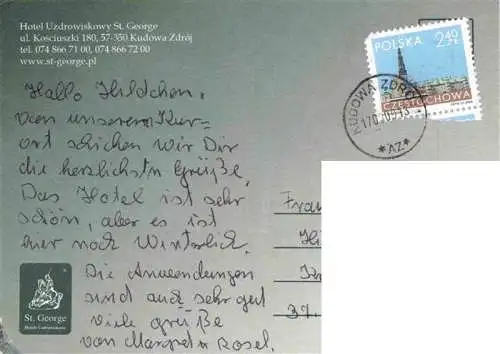 Hotel Uzdrowiskowy St. George
ul. Kościuszki 180, 57-350 Kudowa Zdrój
tel. 074 866 71 00, 074 866 72 00
www.st-george.pl
POLSKA
2,40 ZŁ
CZĘSTOCHOWA
KUDOWA ZDRÓJ
*AZ*
Hallo Hildchen,
von unserem Kur-
ort schicken wir Dir
die herzlichsten Grüße.
Das Hotel ist sehr
schön, aber es ist
hier noch Winterlich.
Die Anwendungen
sind auch sehr gut
viele grüße
von Margret u Rosel.
Frau
Hi
37.
St. George
Hotele Uzdrowiskowe